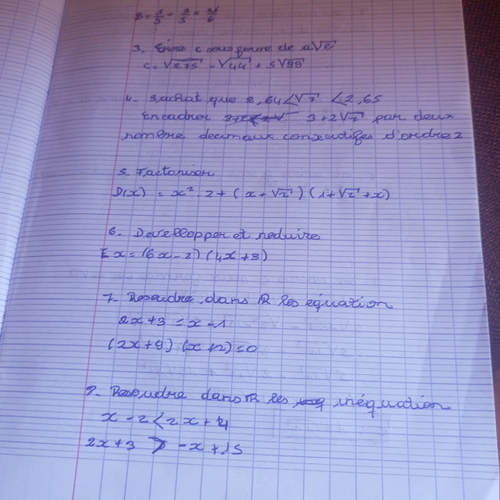 3. Ecrire C sous forme de a√b
C = √275 - √44 + 5√99
4. Sachat que 2,64 < √7 < 2,65
Encadrer 3+2√7 par deux
nombre decimaux consecutifs d'ordre 2
5. Factoriser
D(x) = x² - 2 + (x + √2) (1 + √2 + x)
6. Developper et reduire
Ex = (6x - 2) (4x + 3)
7. Resoudre dans IR les équation
2x + 3 = x - 1
(2x + 9) (x + 2) = 0
8. Resoudre dans IR les inéquation
x - 2 < 2x + 4
2x + 3 > - x + 15